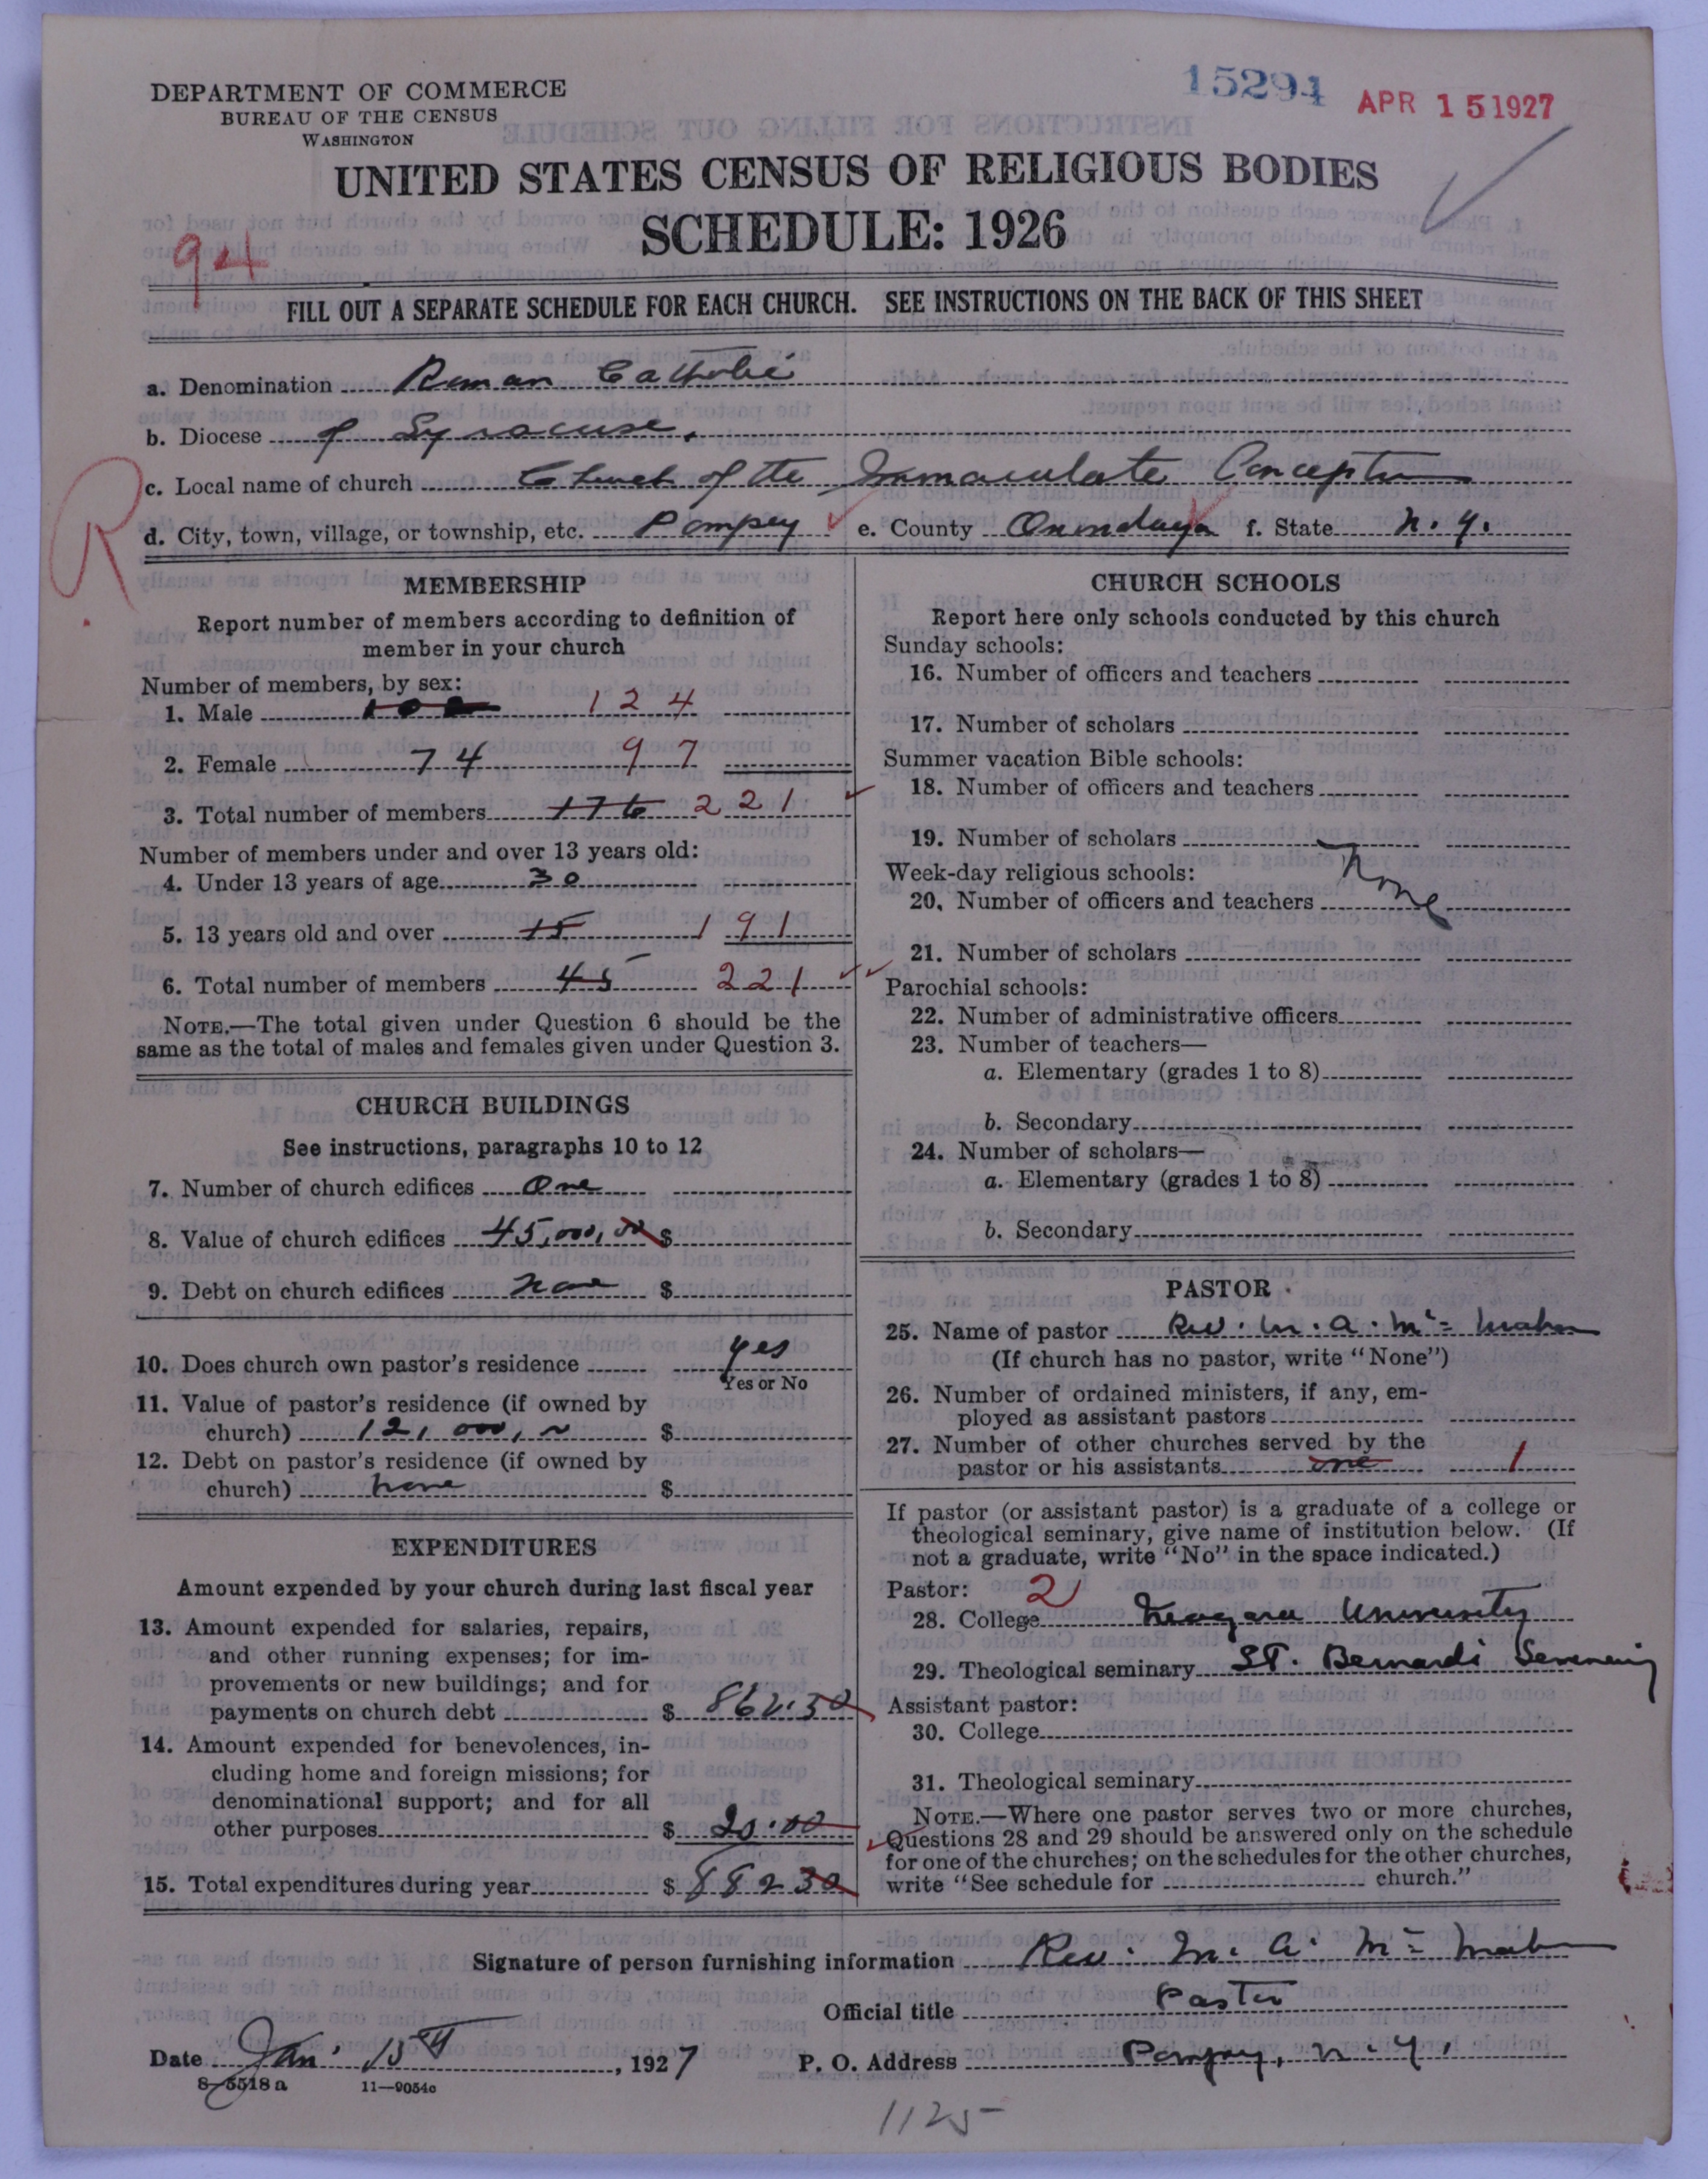 15294 APR 15 1927
DEPARTMENT OF COMMERCE
BUREAU OF THE CENSUS
WASHINGTON
UNITED STATES CENSUS OF RELIGIOUS BODIES
SCHEDULE: 1926
94
FILL OUT A SEPARATE SCHEDULE FOR EACH CHURCH. SEE INSTRUCTIONS ON THE BACK OF THIS SHEET
a. Denomination Roman Catholic
b. Diocese of Syracuse.
c. Local name of church Church of the Immaculate Conception
R
d. City, town, village, or township, etc. Pompey e. County Onondaga f. State N. Y.
MEMBERSHIP
Report number of members according to definition of
member in your church
Number of members, by sex:
1. Male 124
2. Female 74 97
3. Total number of members 176 221
Number of members under and over 13 years old:
4. Under 13 years of age 30
5. 13 years old and over 15 191
6. Total number of members 45 221
NOTE.—The total given under Question 6 should be the
same as the total of males and females given under Question 3.
CHURCH BUILDINGS
See instructions, paragraphs 10 to 12
7. Number of church edifices One
8. Value of church edifices 45,000,00 $
9. Debt on church edifices none $
10. Does church own pastor's residence yes
Yes or No
11. Value of pastor's residence (if owned by
church) 12,000, $
12. Debt on pastor's residence (if owned by
church) none $
EXPENDITURES
Amount expended by your church during last fiscal year
13. Amount expended for salaries, repairs,
and other running expenses; for im-
provements or new buildings; and for
payments on church debt $ 862.30
14. Amount expended for benevolences, in-
cluding home and foreign missions; for
denominational support; and for all
other purposes $ 20.00
15. Total expenditures during year $ 882 30
CHURCH SCHOOLS
Report here only schools conducted by this church
Sunday schools:
16. Number of officers and teachers
17. Number of scholars
Summer vacation Bible schools:
18. Number of officers and teachers
19. Number of scholars
Week-day religious schools:
None
20. Number of officers and teachers
21. Number of scholars
Parochial schools:
22. Number of administrative officers
23. Number of teachers—
a. Elementary (grades 1 to 8)
b. Secondary
24. Number of scholars—
a. Elementary (grades 1 to 8)
b. Secondary
PASTOR
25. Name of pastor Rev. M. A. Mc Mahon
(If church has no pastor, write "None")
26. Number of ordained ministers, if any, em-
ployed as assistant pastors
27. Number of other churches served by the
pastor or his assistants one 1
If pastor (or assistant pastor) is a graduate of a college or
theological seminary, give name of institution below. (If
not a graduate, write "No" in the space indicated.)
Pastor: 2
28. College Niagara University
29. Theological seminary St. Bernards Seminary
Assistant pastor:
30. College
31. Theological seminary
NOTE.—Where one pastor serves two or more churches,
Questions 28 and 29 should be answered only on the schedule
for one of the churches; on the schedules for the other churches,
write "See schedule for church."
Signature of person furnishing information Rev. M. A. Mc Mahon
Official title Pastor
Date Jan. 15th, 1927 P. O. Address Pompey, N. Y.
8-5518a 11-9054c
1125